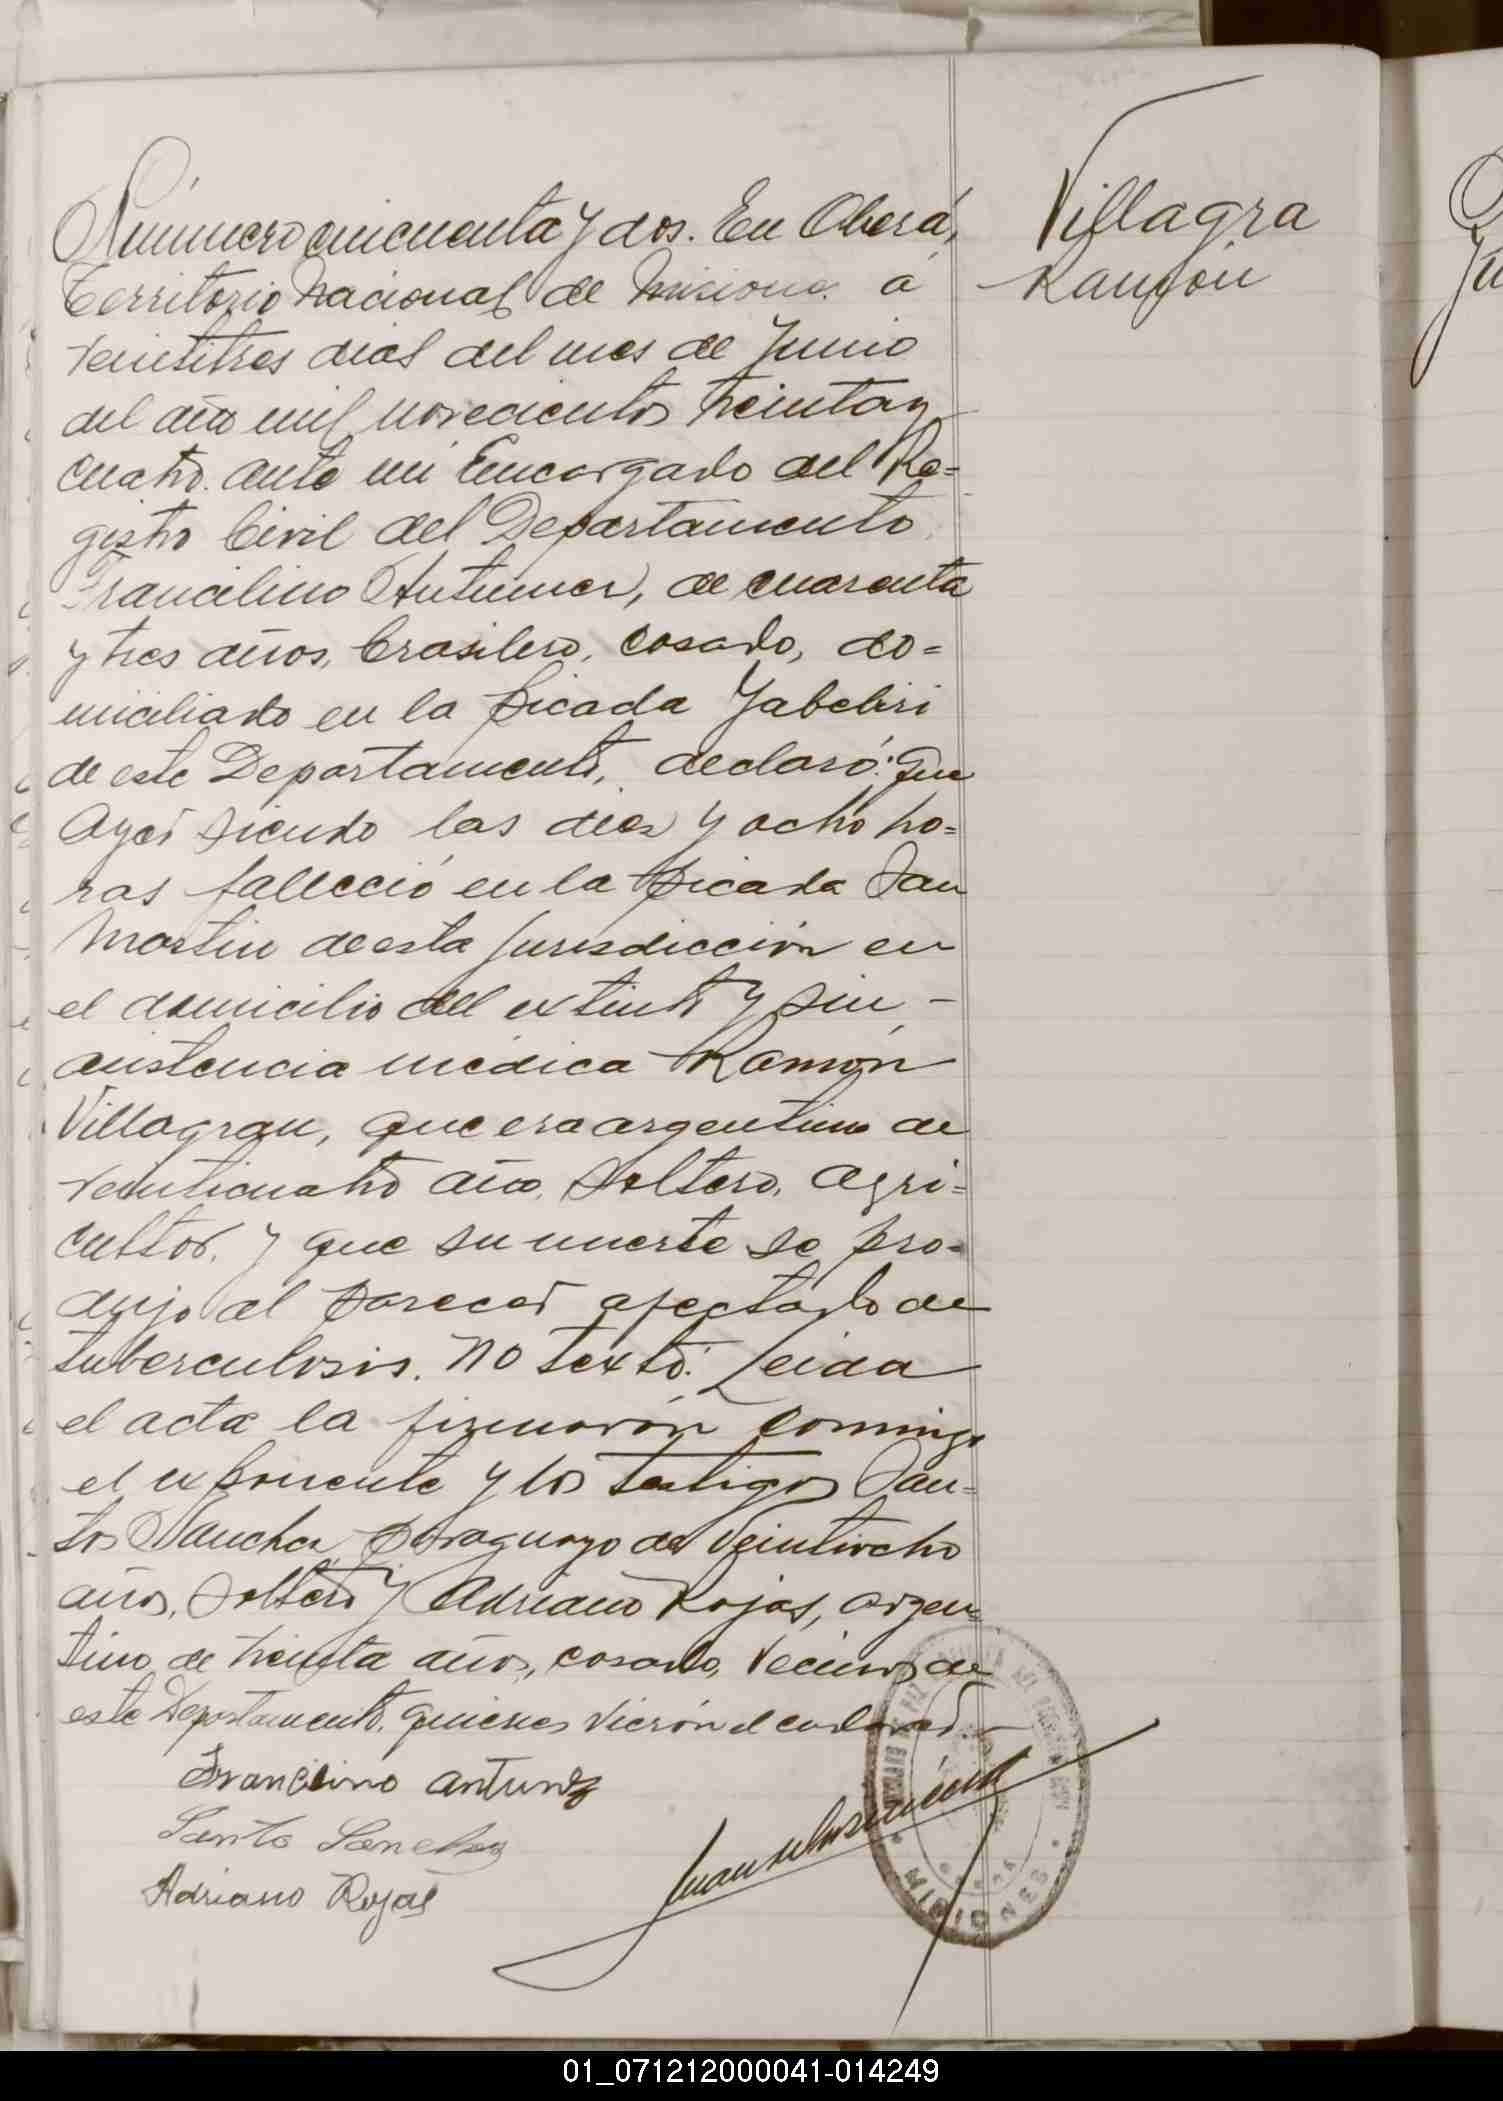 Número cincuenta y dos. En Oberá,
Territorio Nacional de Misiones á
veintitres dias del mes de Junio
del año mil novecientos treinta y
cuatro. ante mi Encargado del Re=
gistro Civil del Departamento
Francilino Antunez, de cuarenta
y tres años, brasilero, casado, do=
miciliado en la picada Yabebiri
de este Departamento, declaró: Que
Ayer siendo las diez y ocho ho=
ras falleció en la picada San
Martin de esta Jurisdicción en
el domicilio del extinto y sin -
asistencia médica Ramón
Villagran, que era argentino de
veinticuatro años, soltero, agri=
cultor, y que su muerte se pro=
dujo al parecer afectado de
tuberculosis. No textó: Leida
el acta la firmarón conmigo
el exponente y los testigos San=
tos Sanchez, paraguayo de veintiocho
años, soltero y Adriano Rojas, argen=
tino de treinta años, casado, vecinos de
este Departamento, quienes vierón el cadaver. -
Francilino Antunez
Santo Sanchez
Adriano Rojas
Villagra
Ramón
MISIONES
01_071212000041-014249